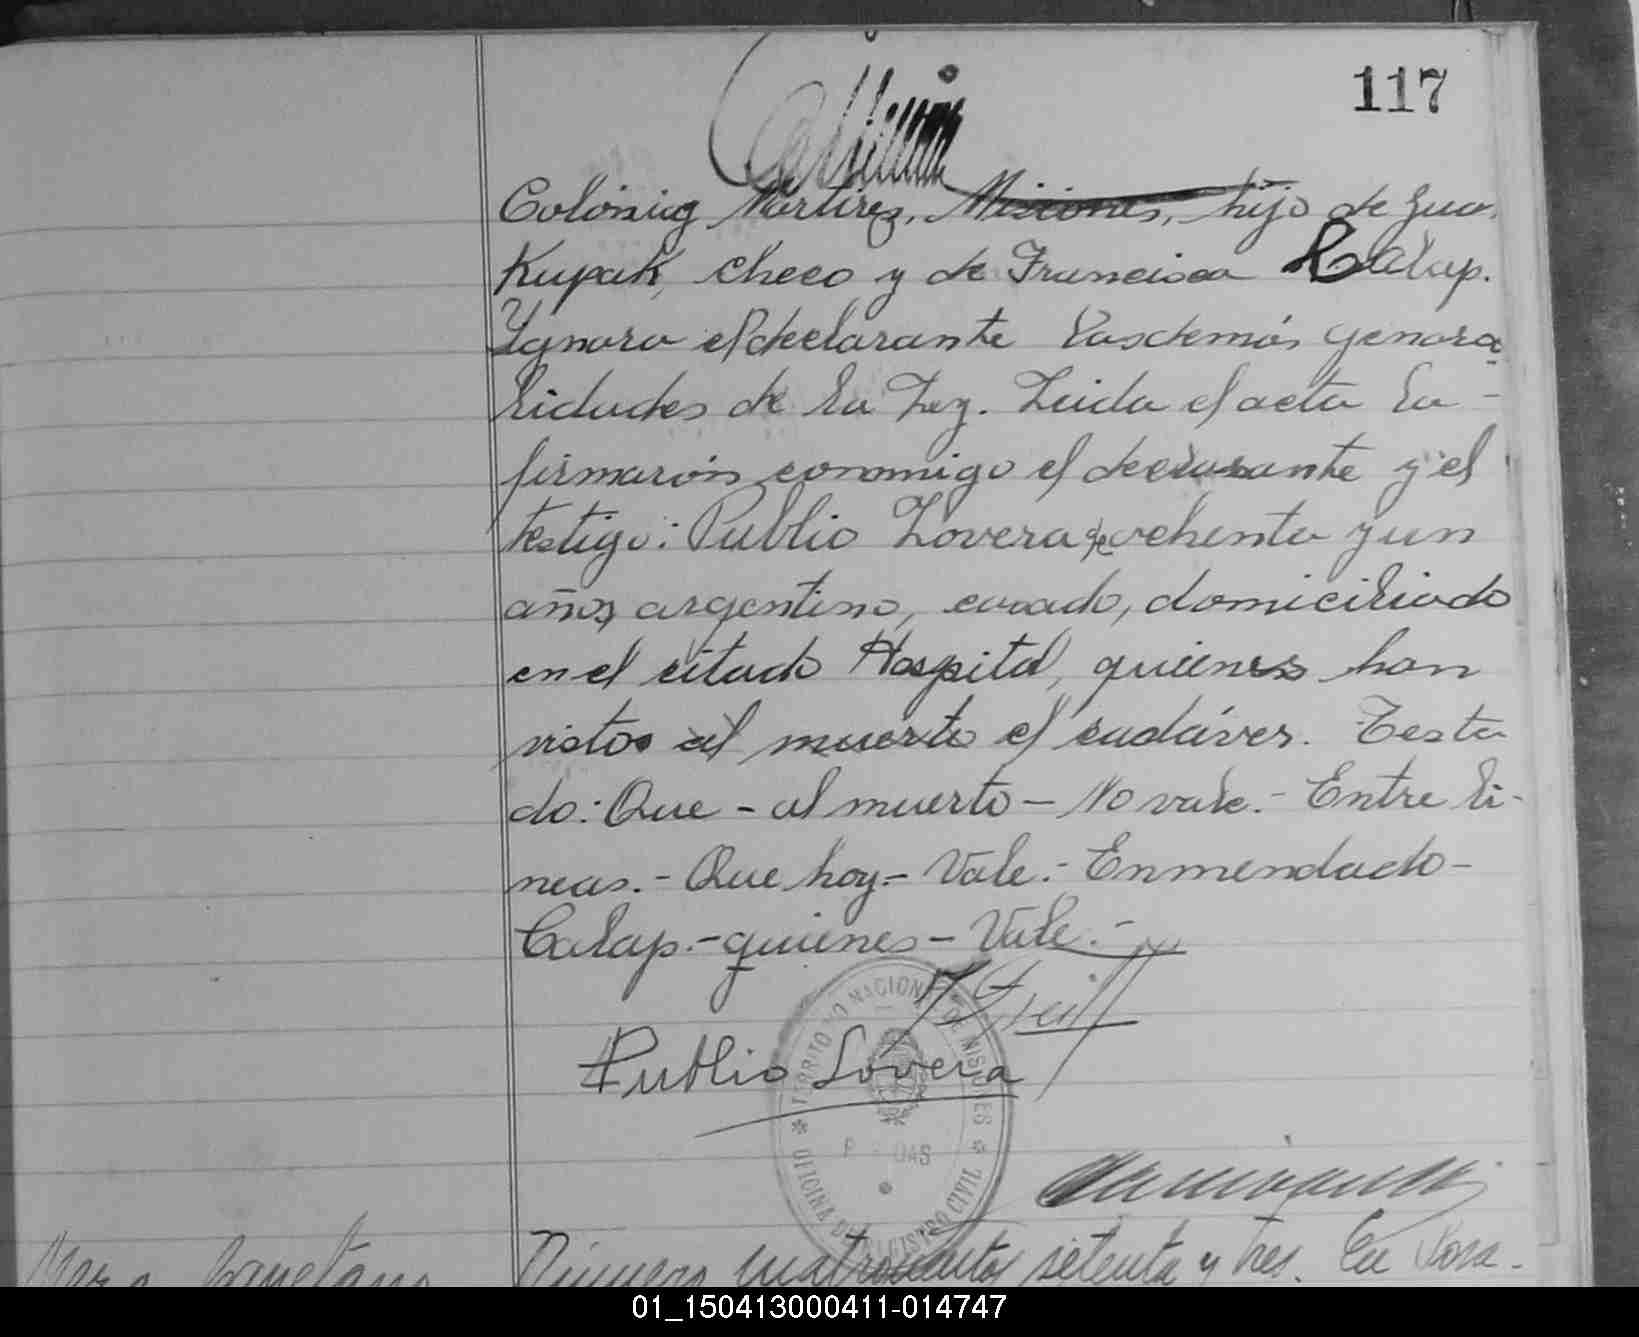 117
Colonia Martires, Misiones, hijo de Juan
Kupak, checo y de Francisca Calap.
Ygnora el declarante las demás genera
lidades de la Ley. Leida el acta la -
firmaron conmigo el declarante y el
testigo: Publio Lovera de ochenta y un
años, argentino, casado, domiciliado
en el citado Hospital, quienes han
visto al muerto el cadáver. Testa
do: Que - al muerto - No vale. - Entre li-
neas. - Que hoy - Vale. - Enmendado -
Calap. - quienes - Vale. -
TERRITORIO NACIONAL DE MISIONES
Publio Lovera
OFICINA DEL REGISTRO CIVIL
Número cuatrocientos setenta y tres. En Posa-
01_150413000411-014747